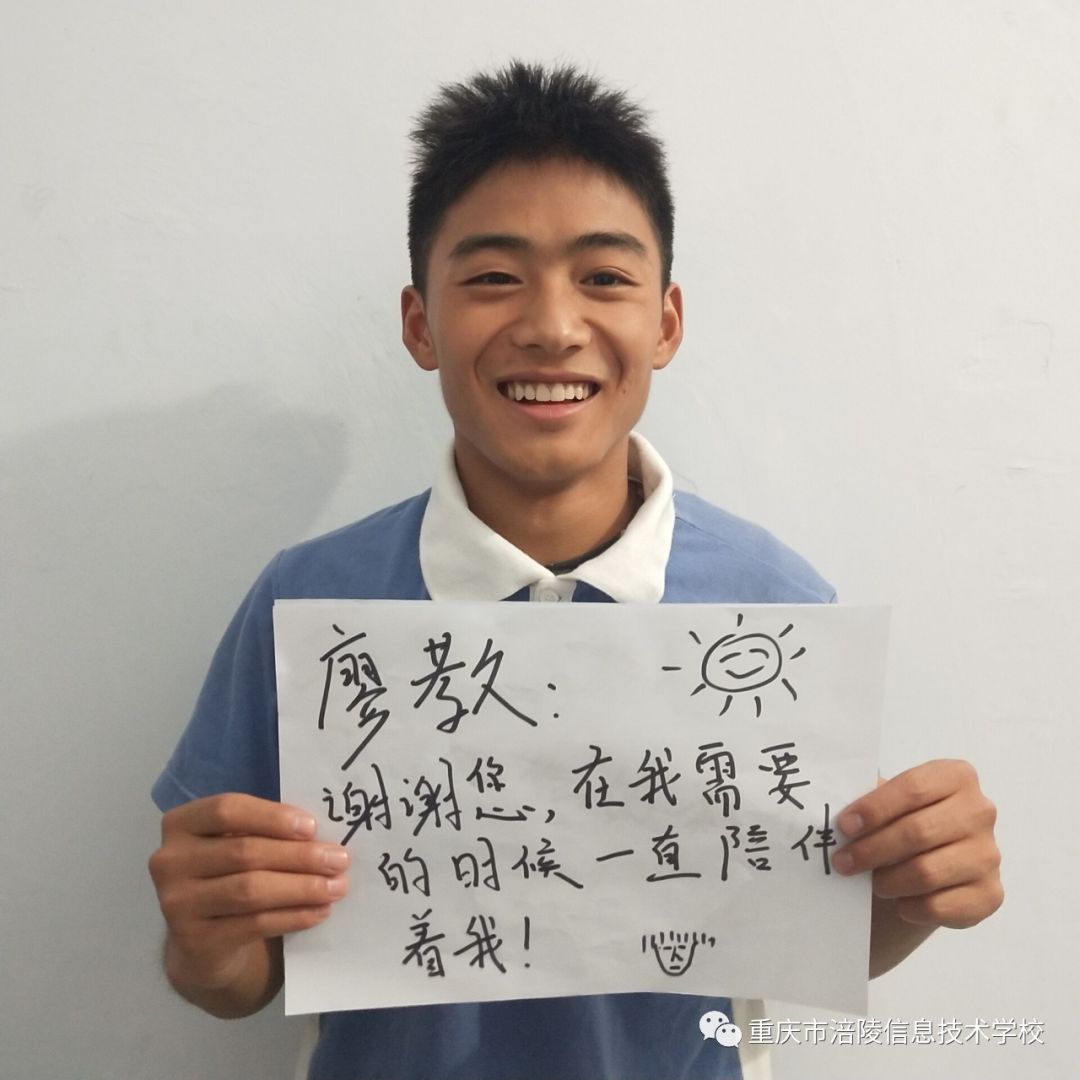 廖教:
谢谢您,在我需要
的时候一直陪伴
着我!
重庆市涪陵信息技术学校